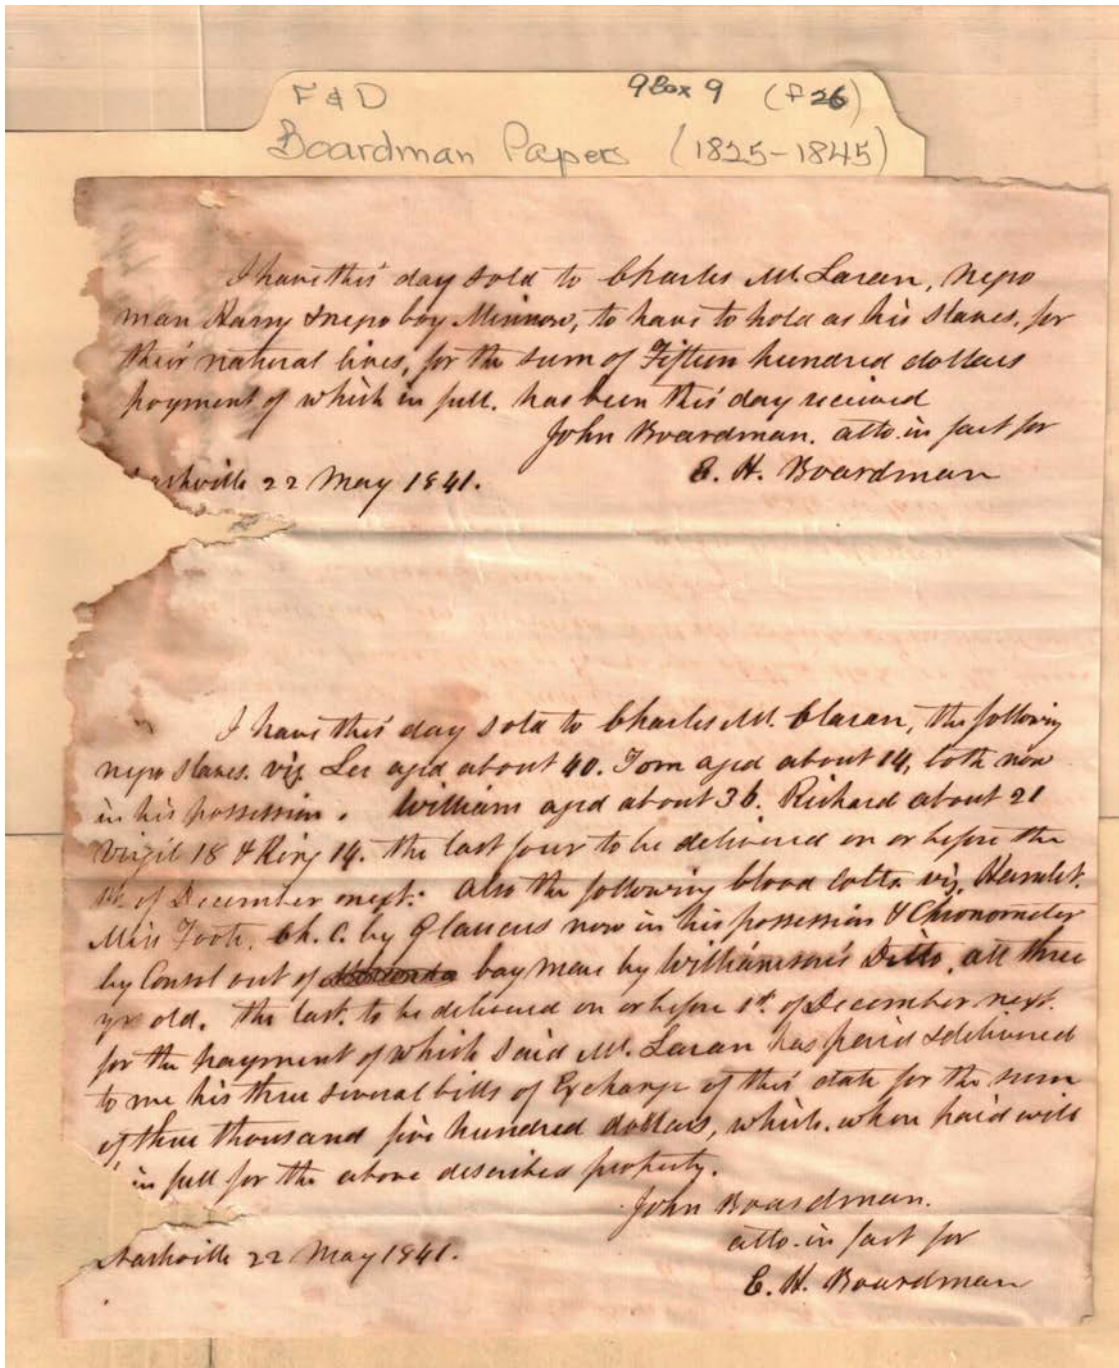 F & D 9 Box 9 (f 26)
Boardman Papers (1825-1845)
I have this day sold to Charles McLaran, negro
man Harry & negro boy Minnow, to have to hold as his slaves, for
their natural lives, for the sum of Fifteen hundred dollars
payment of which in full. has been this day received
John Boardman. atto. in fact for
E. H. Boardman
ashville 22 May 1841.
I have this day sold to Charles Mc. Claran, the following
negro slaves. viz Lee aged about 40. Tom aged about 14, both now
in his possession. William aged about 36. Richard about 21
Virgil 18 & King 14. the last four to be delivered on or before the
1st of December next. Also the following blood colts. viz. Hamlet.
Miss Foote, Ch. C. by Glaucus now in his possession & Chronometer
by Consol out of bay mare by Williamson's Ditto, all three
yr old. the last. to be delivered on or before 1st. of December next.
for the payment of which said Mc. Laran has paid & delivered
to me his three several bills of Exchange of this date for the sum
of three thousand five hundred dollars, which. when paid will
in full for the above described property.
John Boardman.
atto. in fact for
E. H. Boardman
Nashville 22 May 1841.